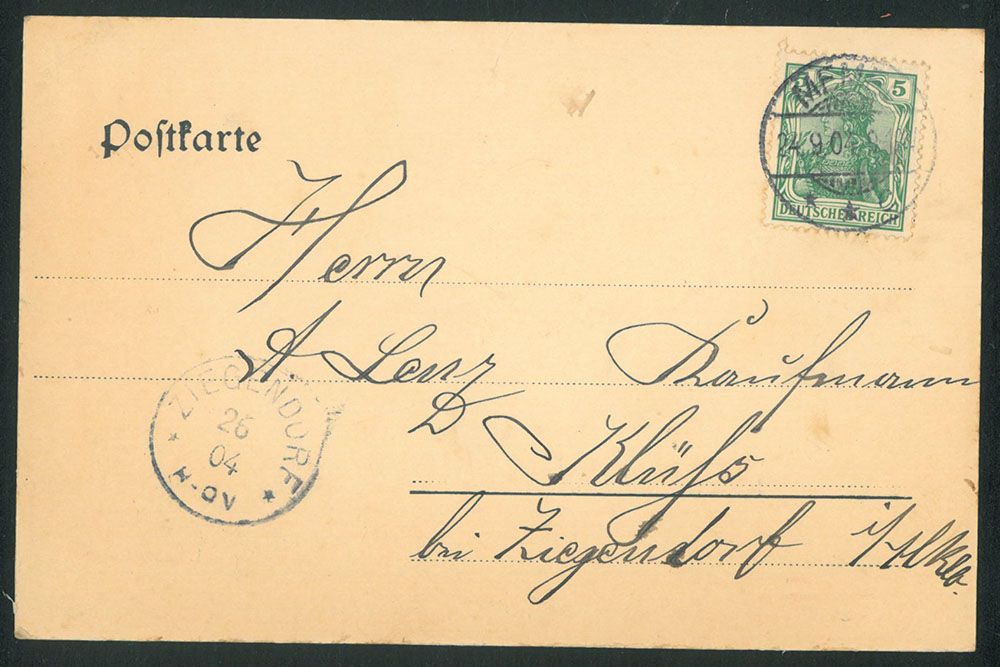 Postkarte
5
24.9.04
DEUTSCHES REICH
Herrn
A Lenz Kaufmann
D
Klüß
bei Ziegendorf i/Mklb.
ZIEGENDORF
26
04